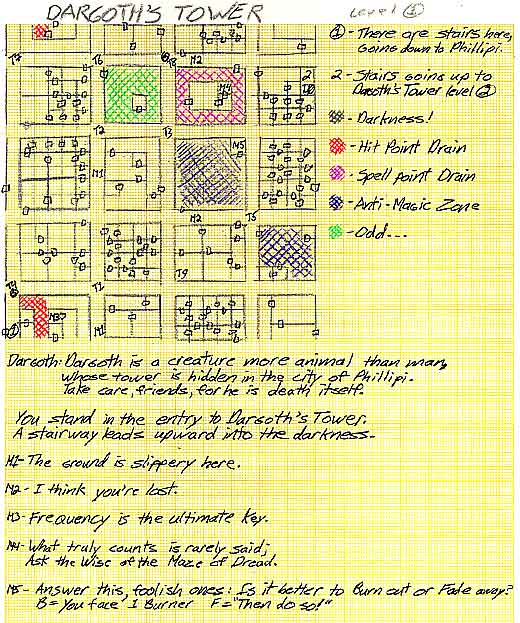 DARGOTH'S TOWER
Level ①
① - There are stairs here, going down to Phillipi.
2 - Stairs going up to Dargoth's Tower level ②
- Darkness!
- Hit Point Drain
- Spell point Drain
- Anti-Magic Zone
- Odd...
T7
T6
M2
M4
2
T2
T3
M1
M5
M2
T5
T9
T1
①
M3
M1
Dargoth: Dargoth is a creature more animal than man,
whose tower is hidden in the city of Phillipi.
Take care, friends, for he is death itself.
You stand in the entry to Dargoth's Tower.
A stairway leads upward into the darkness.
M1 - The ground is slippery here.
M2 - I think you're lost.
M3 - Frequency is the ultimate key.
M4 - What truly counts is rarely said;
Ask the Wise of the Maze of Dread.
M5 - Answer this, foolish ones: Is it better to Burn out or Fade away?
B = You face 1 Burner F = "Then do so!"